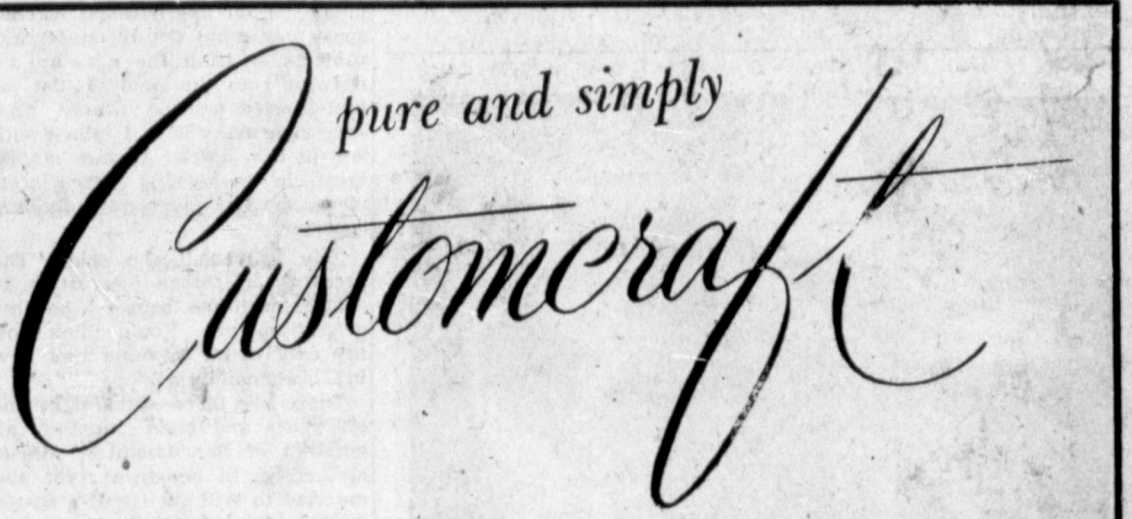 pure and simply
Customcraft